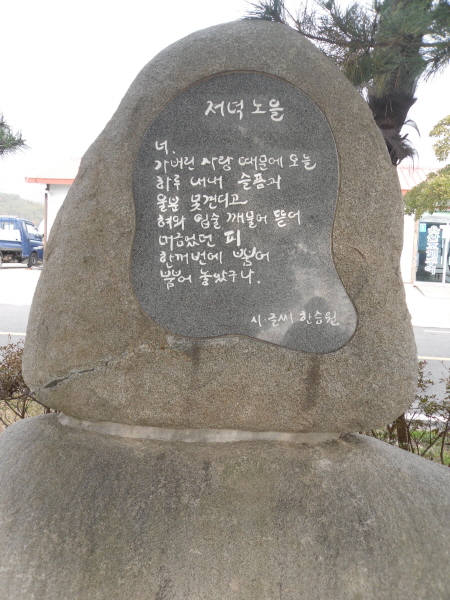 저녁 노을
너.
가버린 사랑 때문에 오늘
하루 내내 슬픔과
울분 못견디고
혀와 입술 깨물어 뜯어
머금었던 피
한꺼번에 뿜어
뿜어 놓았구나.
시·글씨 한승원